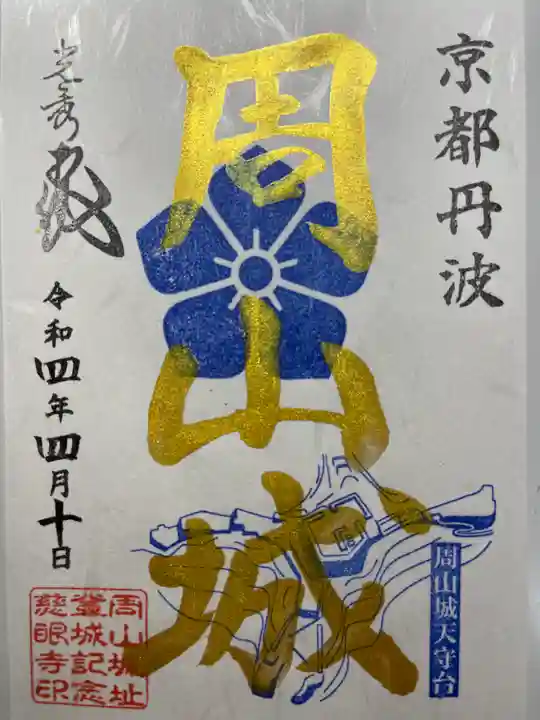 京都丹波
周山城
光秀
令和四年四月十日
周山城天守台
周山城址
登城記念
慈眼寺印